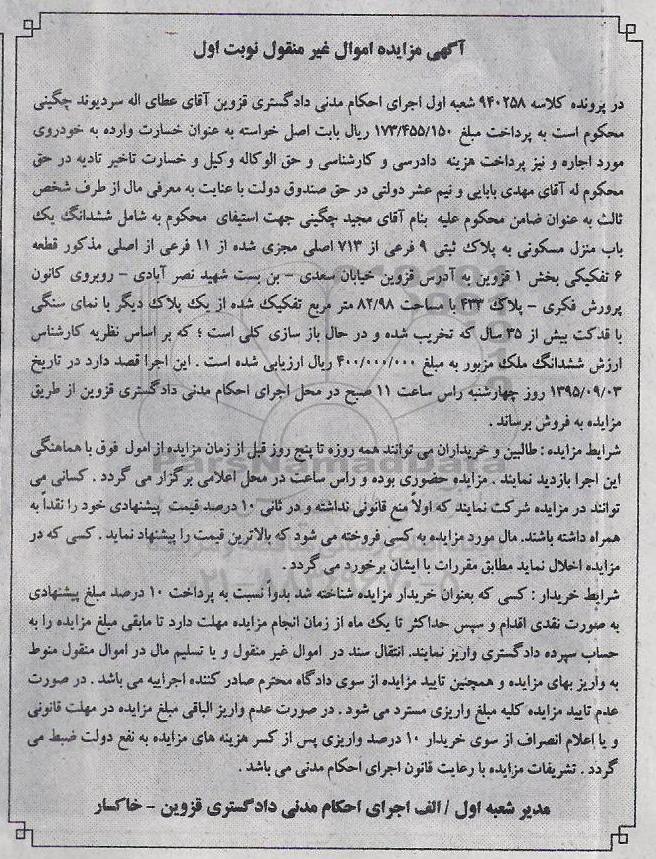 آگهی مزایده اموال غیر منقول نوبت اول
در پرونده کلاسه ۹۴۰۲۵۸ شعبه اول اجرای احکام مدنی دادگستری قزوین آقای عطای اله سردیوند چگینی
محکوم است به پرداخت مبلغ ۱۷۳/۴۵۵/۱۵۰ ریال بابت اصل خواسته به عنوان خسارت وارده به خودروی
مورد اجاره و نیز پرداخت هزینه دادرسی و کارشناسی و حق الوکاله وکیل و خسارت تاخیر تادیه در حق
محکوم له آقای مهدی بابایی و نیم عشر دولتی در حق صندوق دولت با عنایت به معرفی مال از طرف شخص
ثالث به عنوان ضامن محکوم علیه بنام آقای مجید چگینی جهت استیفای محکوم به شامل ششدانگ یک
باب منزل مسکونی به پلاک ثبتی ۹ فرعی از ۷۱۳ اصلی مجزی شده از ۱۱ فرعی از اصلی مذکور قطعه
۶ تفکیکی بخش ۱ قزوین به آدرس قزوین خیابان سعدی – بن بست شهید نصر آبادی – روبروی کانون
پرورش فکری – پلاک ۴۳۳ با مساحت ۸۲/۹۸ متر مربع تفکیک شده از یک پلاک دیگر با نمای سنگی
با قدکت بیش از ۳۵ سال که تخریب شده و در حال باز سازی کلی است ؛ که بر اساس نظریه کارشناس
ارزش ششدانگ ملک مزبور به مبلغ ۴۰۰/۰۰۰/۰۰۰ ریال ارزیابی شده است . این اجرا قصد دارد در تاریخ
۱۳۹۵/۰۹/۰۳ روز چهارشنبه راس ساعت ۱۱ صبح در محل اجرای احکام مدنی دادگستری قزوین از طریق
مزایده به فروش برساند .
شرایط مزایده : طالبین و خریداران می توانند همه روزه تا پنج روز قبل از زمان مزایده از امول فوق با هماهنگی
این اجرا بازدید نمایند . مزایده حضوری بوده و راس ساعت در محل اعلامی برگزار می گردد . کسانی می
توانند در مزایده شرکت نمایند که اولاً منع قانونی نداشته و در ثانی ۱۰ درصد قیمت پیشنهادی خود را نقداً به
همراه داشته باشند. مال مورد مزایده به کسی فروخته می شود که بالاترین قیمت را پیشنهاد نماید . کسی که در
مزایده اخلال نماید مطابق مقررات با ایشان برخورد می گردد .
شرایط خریدار : کسی که بعنوان خریدار مزایده شناخته شد بدواً نسبت به پرداخت ۱۰ درصد مبلغ پیشنهادی
به صورت نقدی اقدام و سپس حداکثر تا یک ماه از زمان انجام مزایده مهلت دارد تا مابقی مبلغ مزایده را به
حساب سپرده دادگستری واریز نمایند. انتقال سند در اموال غیر منقول و یا تسلیم مال در اموال منقول منوط
به واریز بهای مزایده و همچنین تایید مزایده از سوی دادگاه محترم صادر کننده اجراییه می باشد . در صورت
عدم تایید مزایده کلیه مبلغ واریزی مسترد می شود . در صورت عدم واریز الباقی مبلغ مزایده در مهلت قانونی
و یا اعلام انصراف از سوی خریدار ۱۰ درصد واریزی پس از کسر هزینه های مزایده به نفع دولت ضبط می
گردد . تشریفات مزایده با رعایت قانون اجرای احکام مدنی می باشد .
مدیر شعبه اول / الف اجرای احکام مدنی دادگستری قزوین – خاکسار
ParsNamadData